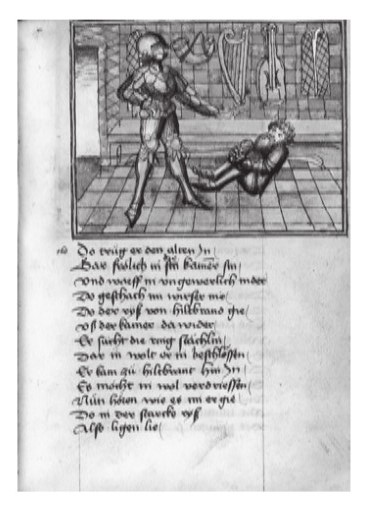 Do trůg er den alten jn
Gar frölich in sin kamer sin
Vnd warff in vngewerlich nider
Do geschach im wirser nie
Do der ryß von hiltbrand gie
Vß der kamer da wider
Er sucht die ring stächlin
Dar in wolt er in beschlossen
Er kam zů hiltbrant hin jn
Es möcht in wol verdriessen
Nůn hören wie es im ergie
Do in der starcke ryß
Also ligen lie